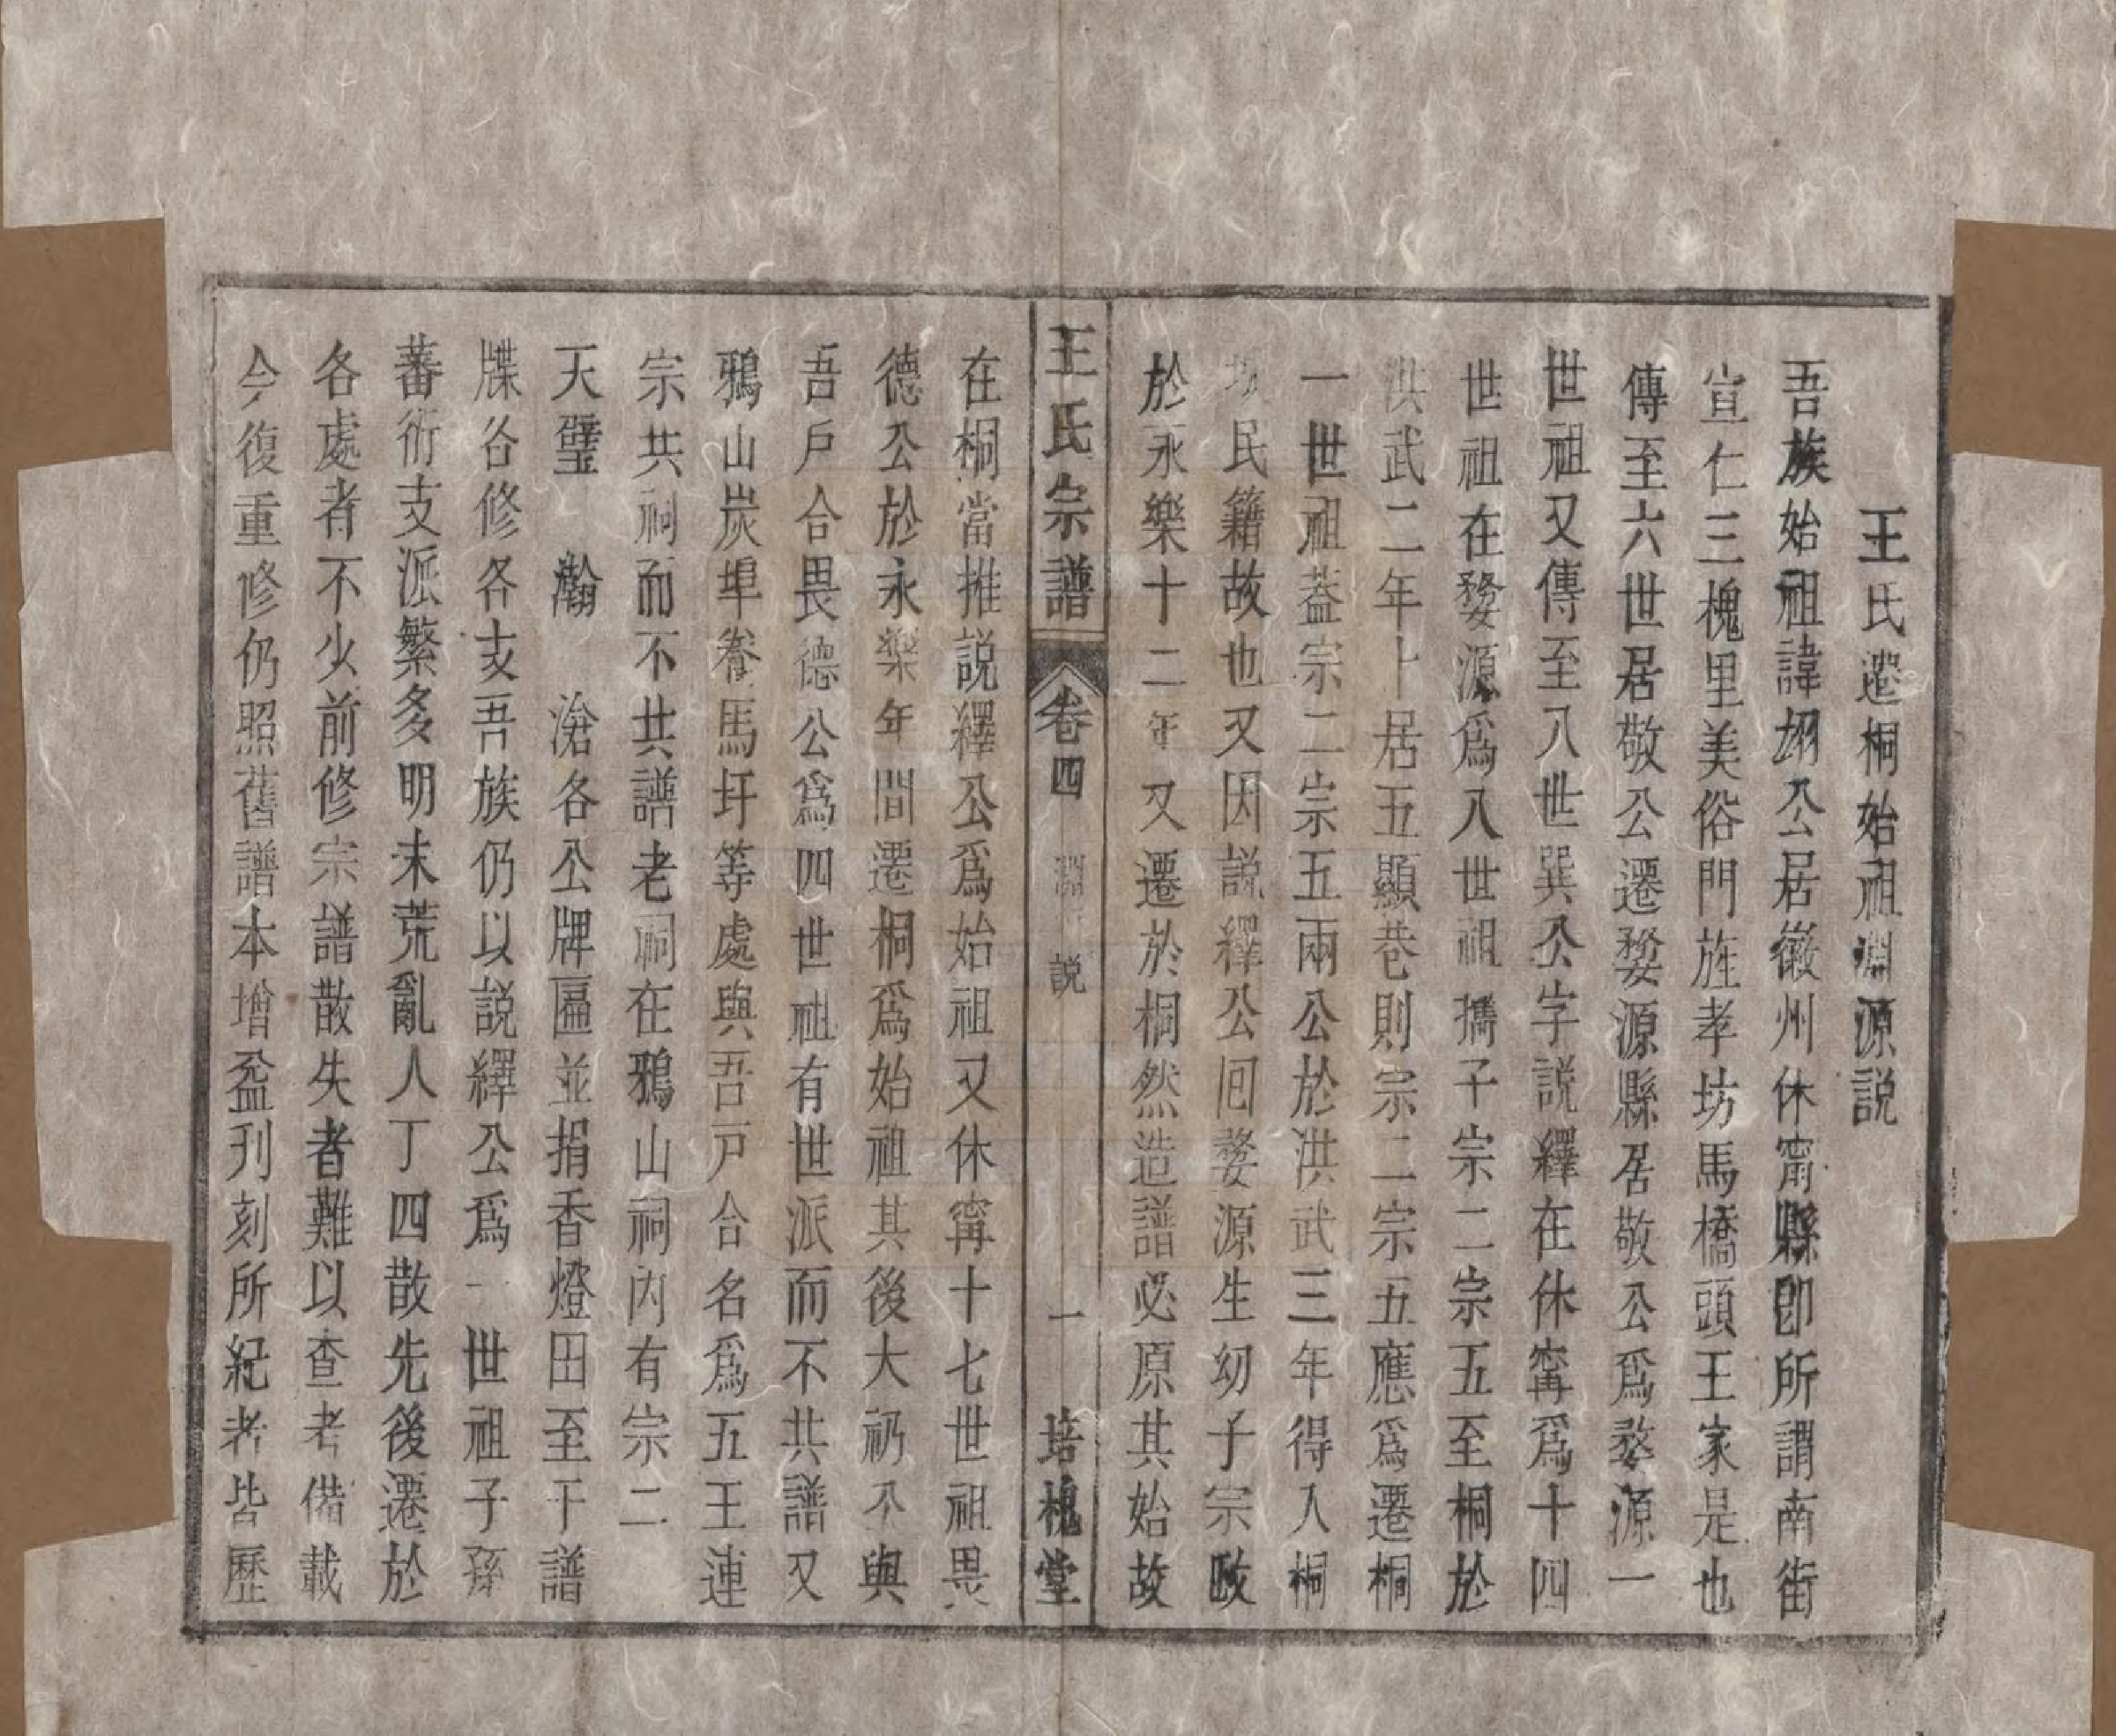 王氏遷桐始祖淵源說
吾族始祖諱翊公居徽州休甯縣即所謂南街
宣仁三槐里美俗門旌孝坊馬橋頭王家是也
傳至六世居敬公遷婺源縣居敬公爲婺源一
世祖又傳至八世巽公字説繹在休甯爲十四
世祖在婺源爲八世祖攜子宗二宗五至桐於
洪武二年卜居五顯巷則宗二宗五應爲遷桐
一世祖葢宗二宗五兩公於洪武三年得入桐
城民籍故也又因説繹公囘婺源生幼子宗政
於永樂十二年又遷於桐然造譜必原其始故
王氏宗譜 卷四 淵源説 一 培槐堂
在桐當推説繹公爲始祖又休甯十七世祖畏
德公於永樂年間遷桐爲始祖其後大礽不與
吾戶合畏德公爲四世祖有世派而不共譜又
鴉山炭埠養馬圩等處與吾戸合名爲五王連
宗共祠而不共譜老祠在鴉山祠內有宗二
天璧 瀚 滄各公牌匾並捐香燈田至于譜
牒各修各支吾族仍以説繹公爲一世祖子孫
蕃衍支派繁多明末荒亂人丁四散先後遷於
各處者不少前修宗譜散失者難以查考備載
今復重修仍照舊譜本增益刋刻所紀者皆歷